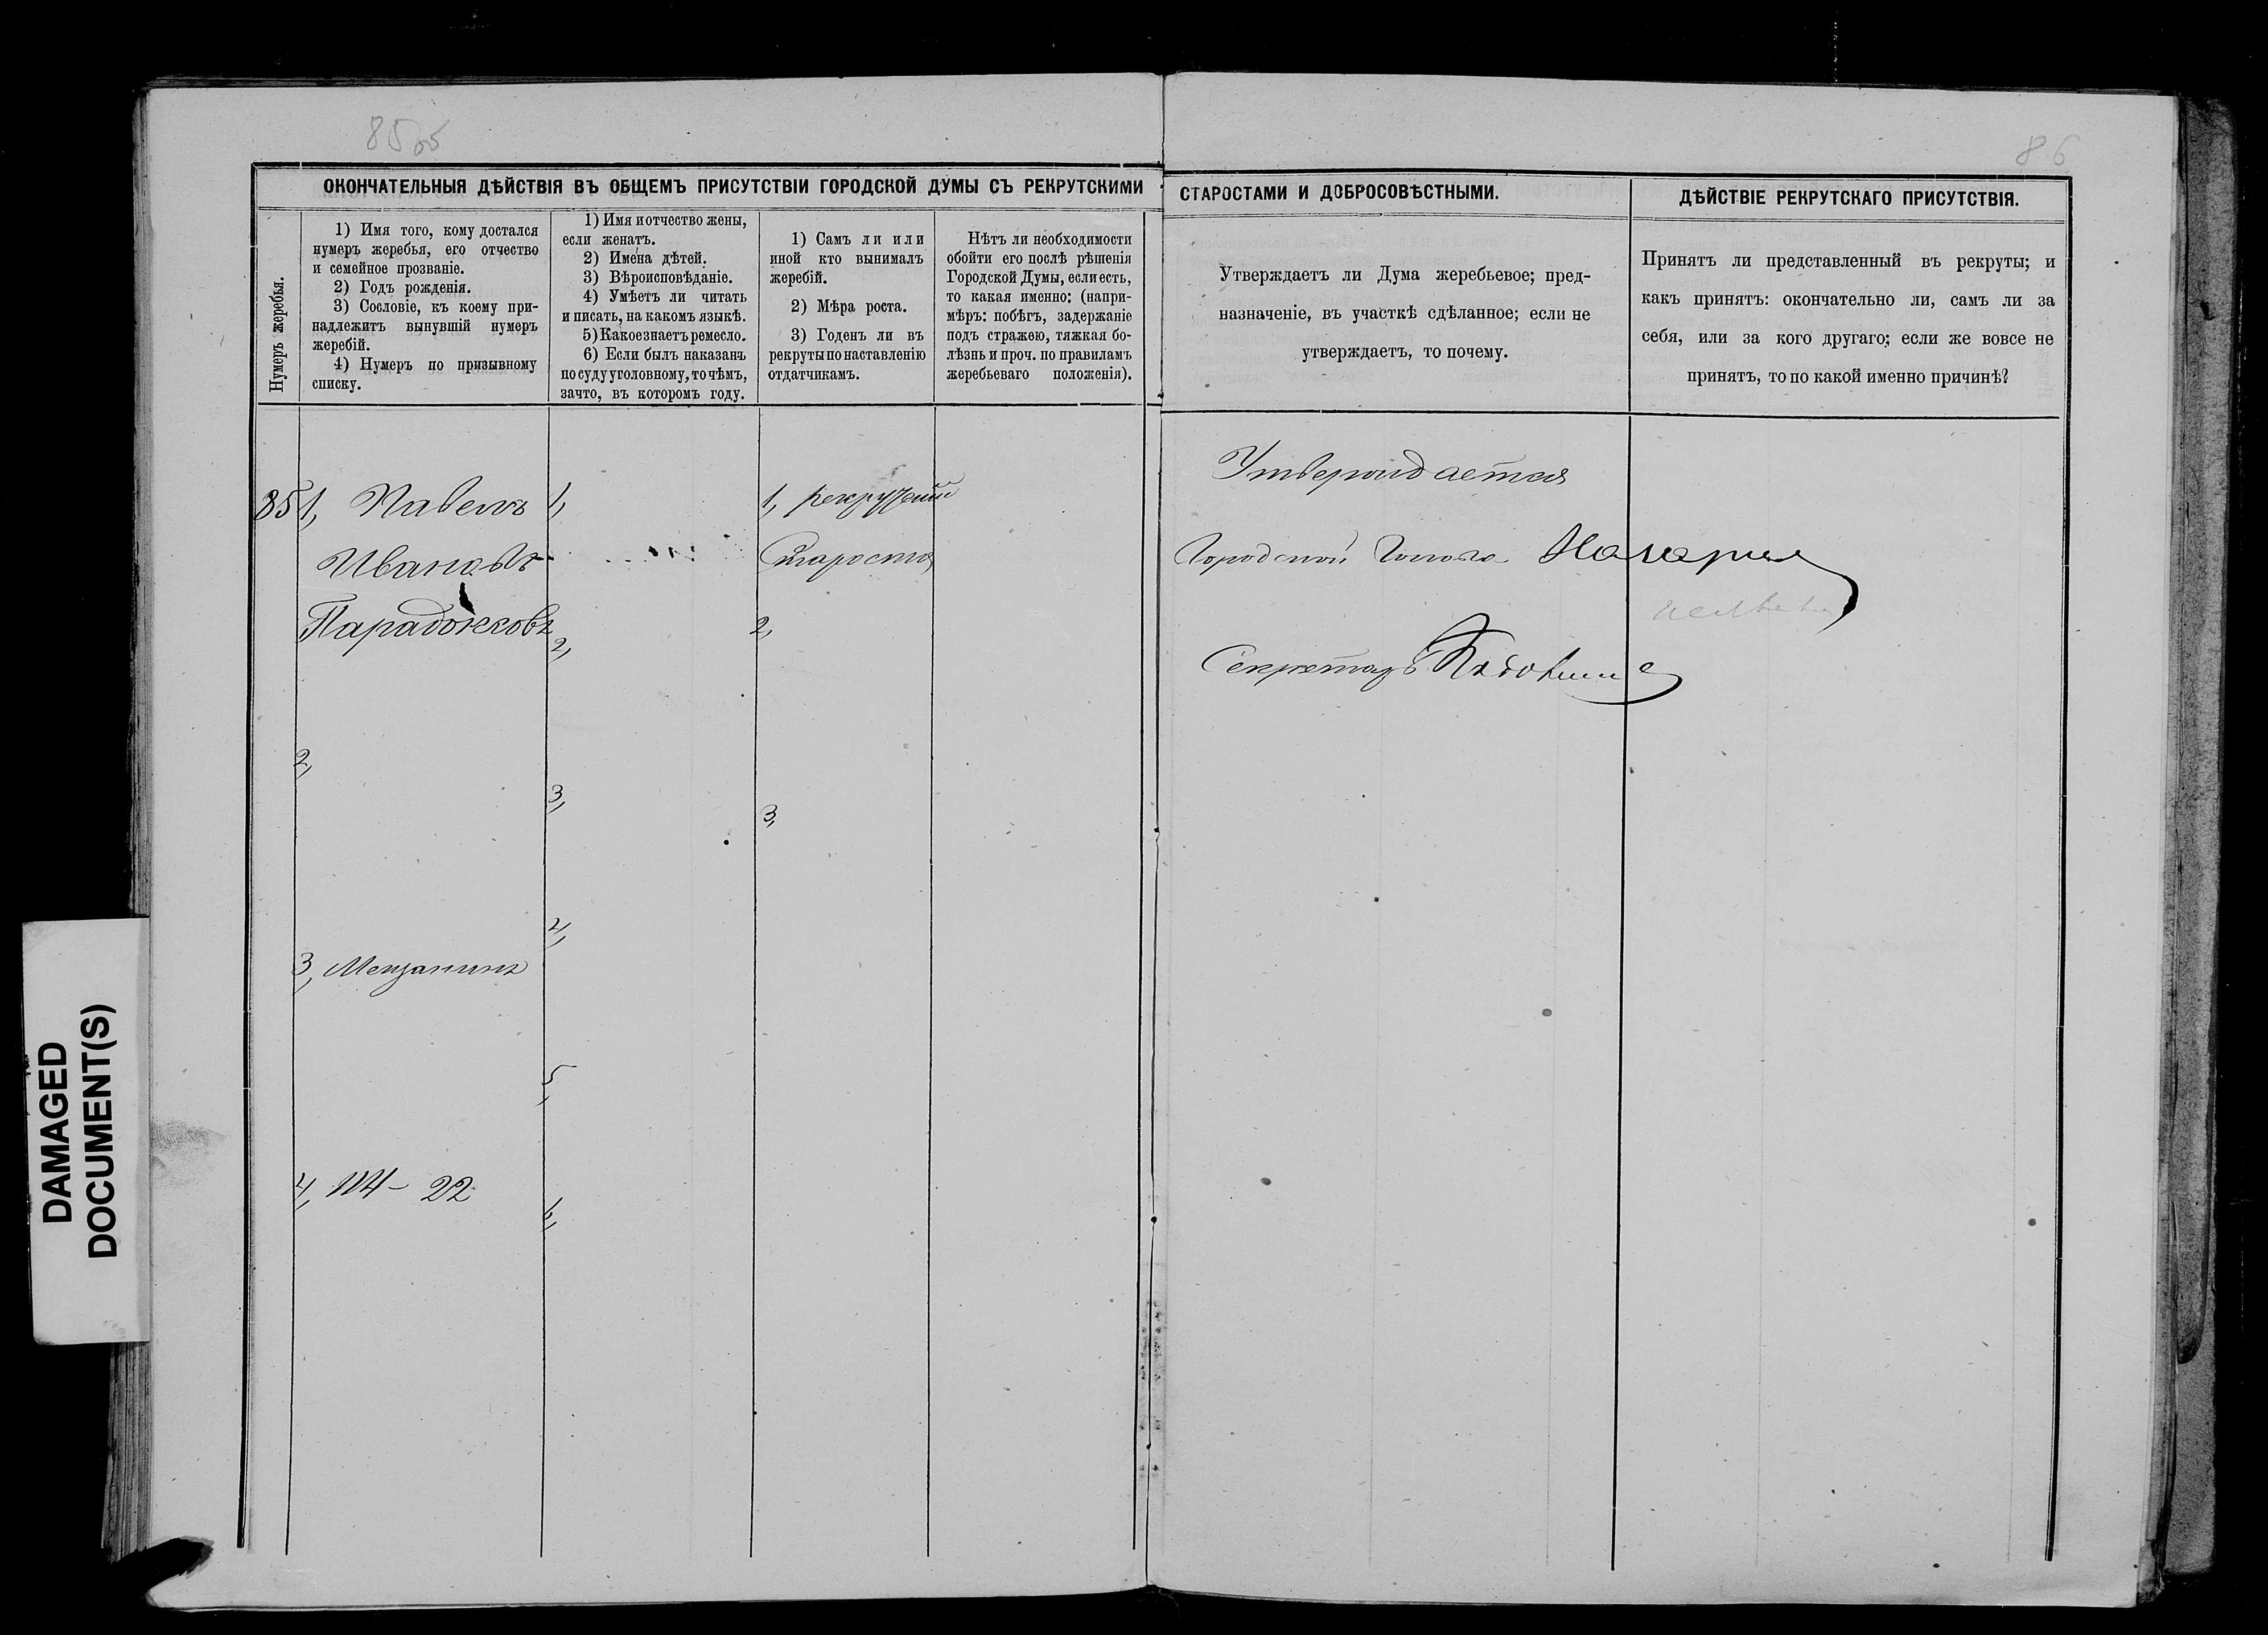 85об
86
ОКОНЧАТЕЛЬНЫЯ ДѢЙСТВІЯ ВЪ ОБЩЕМЪ ПРИСУТСТВІИ ГОРОДСКОЙ ДУМЫ СЪ РЕКРУТСКИМИ СТАРОСТАМИ И ДОБРОСОВѢСТНЫМИ.
ДѢЙСТВІЕ РЕКРУТСКАГО ПРИСУТСТВІЯ.
Нумеръ жеребья.
1) Имя того, кому достался
нумеръ жеребья, его отчество
и семейное прозваніе.
2) Годъ рожденія.
3) Сословіе, къ коему при-
надлежитъ вынувшій нумеръ
жеребій.
4) Нумеръ по призывному
списку.
1) Имя и отчество жены,
если женатъ.
2) Имена дѣтей.
3) Вѣроисповѣданіе.
4) Умѣетъ ли читать
и писать, на какомъ языкѣ.
5) Какое знаетъ ремесло.
6) Если былъ наказанъ
по суду уголовному, то чѣмъ,
за что, въ которомъ году.
1) Самъ ли или
иной кто вынималъ
жеребій.
2) Мѣра роста.
3) Годенъ ли въ
рекруты по наставленію
отдатчикамъ.
Нѣтъ ли необходимости
обойти его послѣ рѣшенія
Городской Думы, если есть,
то какая именно: (напри-
мѣръ: побѣгъ, задержаніе
подъ стражею, тяжкая бо-
лѣзнь и проч. по правиламъ
жеребьеваго положенія).
Утверждаетъ ли Дума жеребьевое; пред-
назначеніе, въ участкѣ сдѣланное; если не
утверждаетъ, то почему.
Принятъ ли представленный въ рекруты; и
какъ принятъ: окончательно ли, самъ ли за
себя, или за кого другаго; если же вовсе не
принятъ, то по какой именно причинѣ?
85
1, Павелъ
Ивановъ
Парадожковъ
2,
3, Мещанинъ
4, 114 – 22
1,
2,
3,
4,
5,
6,
1, рекрутскій
Староста
2,
3,
Утверждается
Городской Голова
Секретарь
DAMAGED
DOCUMENT(S)